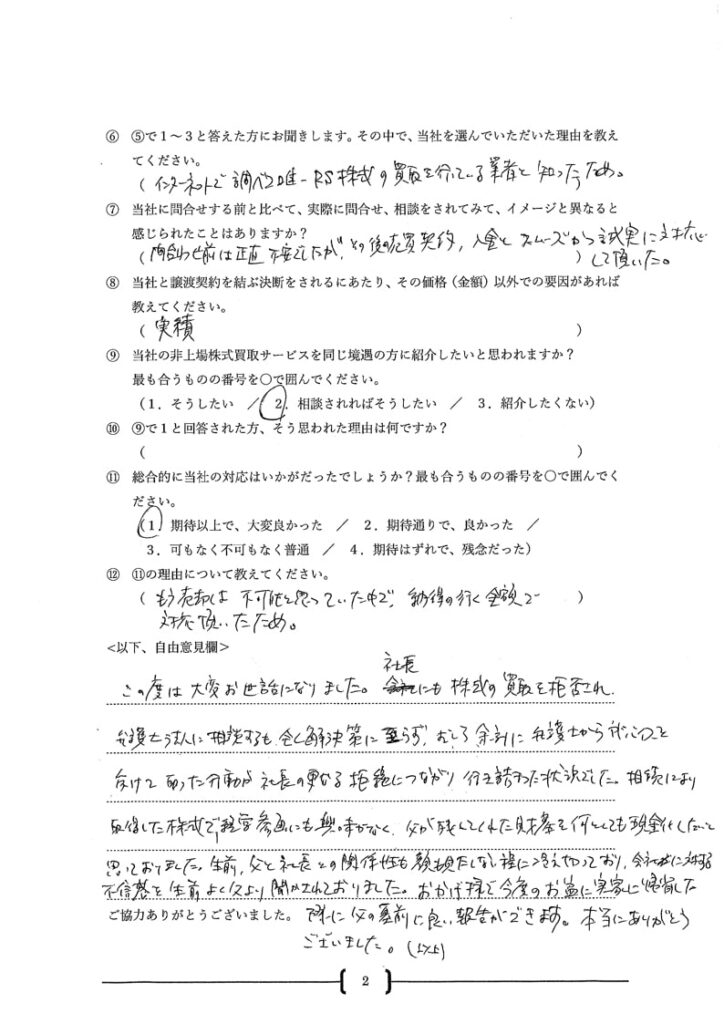 ⑥ ⑤で1～3と答えた方にお聞きします。その中で、当社を選んでいただいた理由を教え
てください。
(インターネットで調べ唯一RS株式の買取を行っている業者と知ったため。
⑦ 当社に問合せする前と比べて、実際に問合せ、相談をされてみて、イメージと異なると
感じられたことはありますか？
(問合わせ前は正直不安でしたが、その後の売買契約、入金とスムーズかつ誠実に対応)
して頂いた。
⑧ 当社と譲渡契約を結ぶ決断をされるにあたり、その価格（金額）以外での要因があれば
教えてください。
(実積 )
⑨ 当社の非上場株式買取サービスを同じ境遇の方に紹介したいと思われますか？
最も合うものの番号を○で囲んでください。
(1．そうしたい ／ 2．相談されればそうしたい ／ 3．紹介したくない)
⑩ ⑨で1と回答された方、そう思われた理由は何ですか？
( )
⑪ 総合的に当社の対応はいかがだったでしょうか？最も合うものの番号を○で囲んでく
ださい。
(1．期待以上で、大変良かった ／ 2．期待通りで、良かった ／
3．可もなく不可もなく普通 ／ 4．期待はずれで、残念だった)
⑫ ⑪の理由について教えてください。
(もう売却は不可能と思っていた中で、納得の行く金額で )
対応頂いたため。
<以下、自由意見欄>
社長
この度は大変お世話になりました。にも株式の買取を拒否され
弁護士法人に相談するも、全く解決策に至らず、むしろ余計に弁護士から
受けて取った行動が社長の更なる拒絶につながり行き詰まった状況でした。相続により
取得した株式で、経営参画にも興味がなく、父が残してくれた財産を何としても現金化したいと
思っておりました。生前、父と社長との関係性も顔も見たくない程に冷え切っており、会社に対する
不信感を生前よく父より聞かされておりました。おかげ様で今度のお盆に実家に帰省した
ご協力ありがとうございました。 際に父の墓前に良い報告ができます。本当にありがとう
ございました。(以上)
2